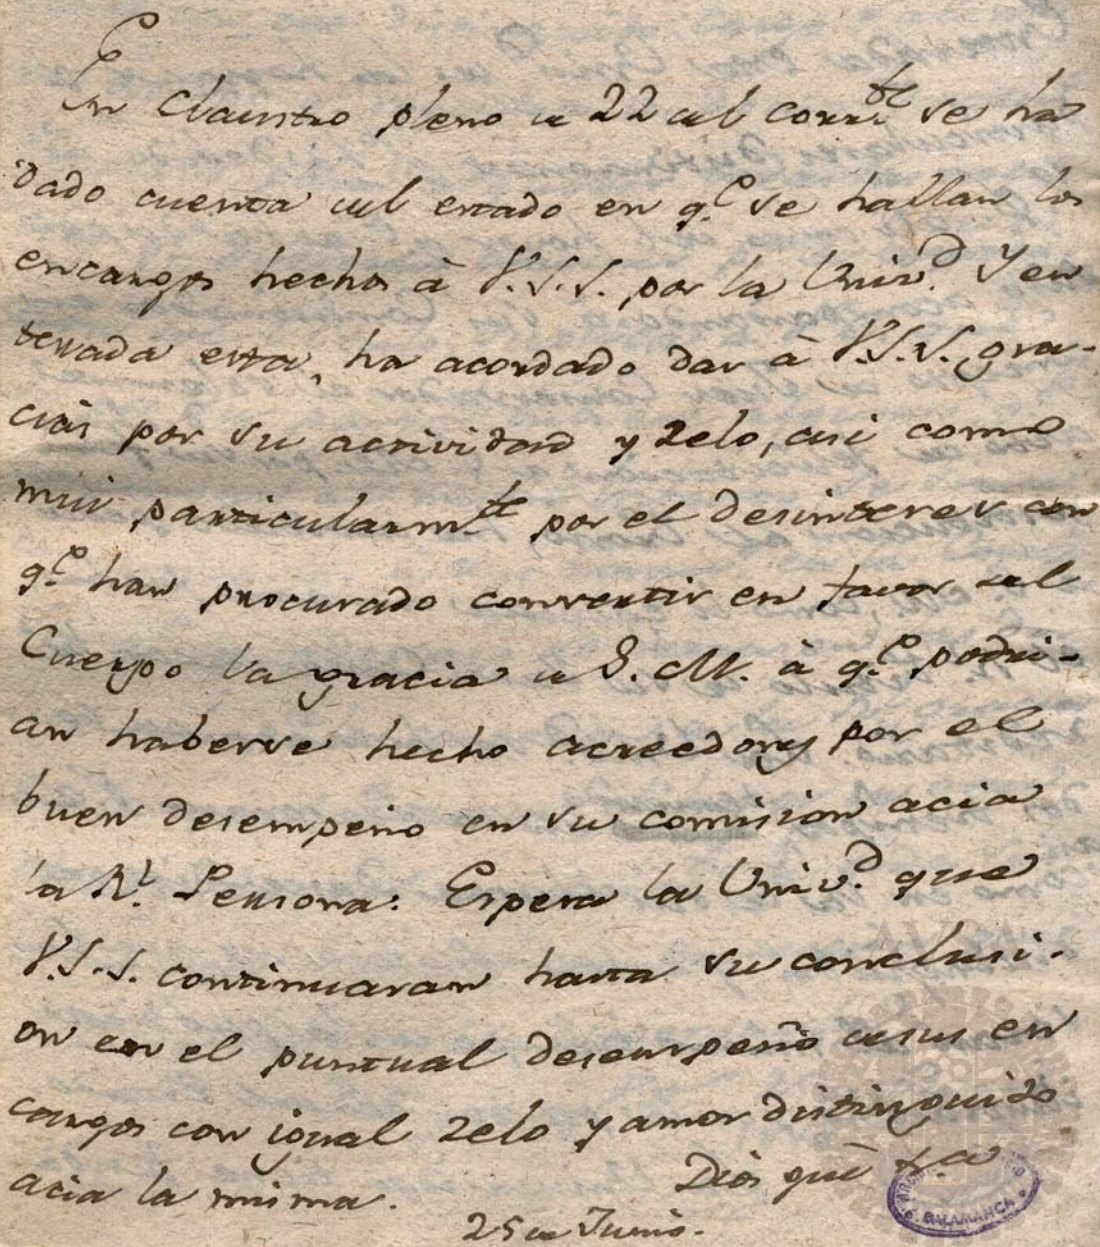 En Claustro pleno de 22 del corr.te se ha
dado cuenta del estado en q.e se hallan los
encargos hechos à V.S.S. por la Univ.d Y en
terada esta, ha acordado dar à V.S.S. gra-
cias por su actividad y zelo, asi como
mui particularm.te por el desinteres con
q.e han procurado convertir en favor del
Cuerpo la gracia de S.M. à q.e podri-
an haberse hecho acreedores por el
buen desempeño en su comision acia
la R.l Persona. Espera la Univ.d que
V.S.S. continuaran hasta su conclusi-
on en el puntual desempeño de sus en
cargos con igual zelo y amor distinguido
acia la misma. Dios gue
25 de Junio.
AVSA
SALAMANCA